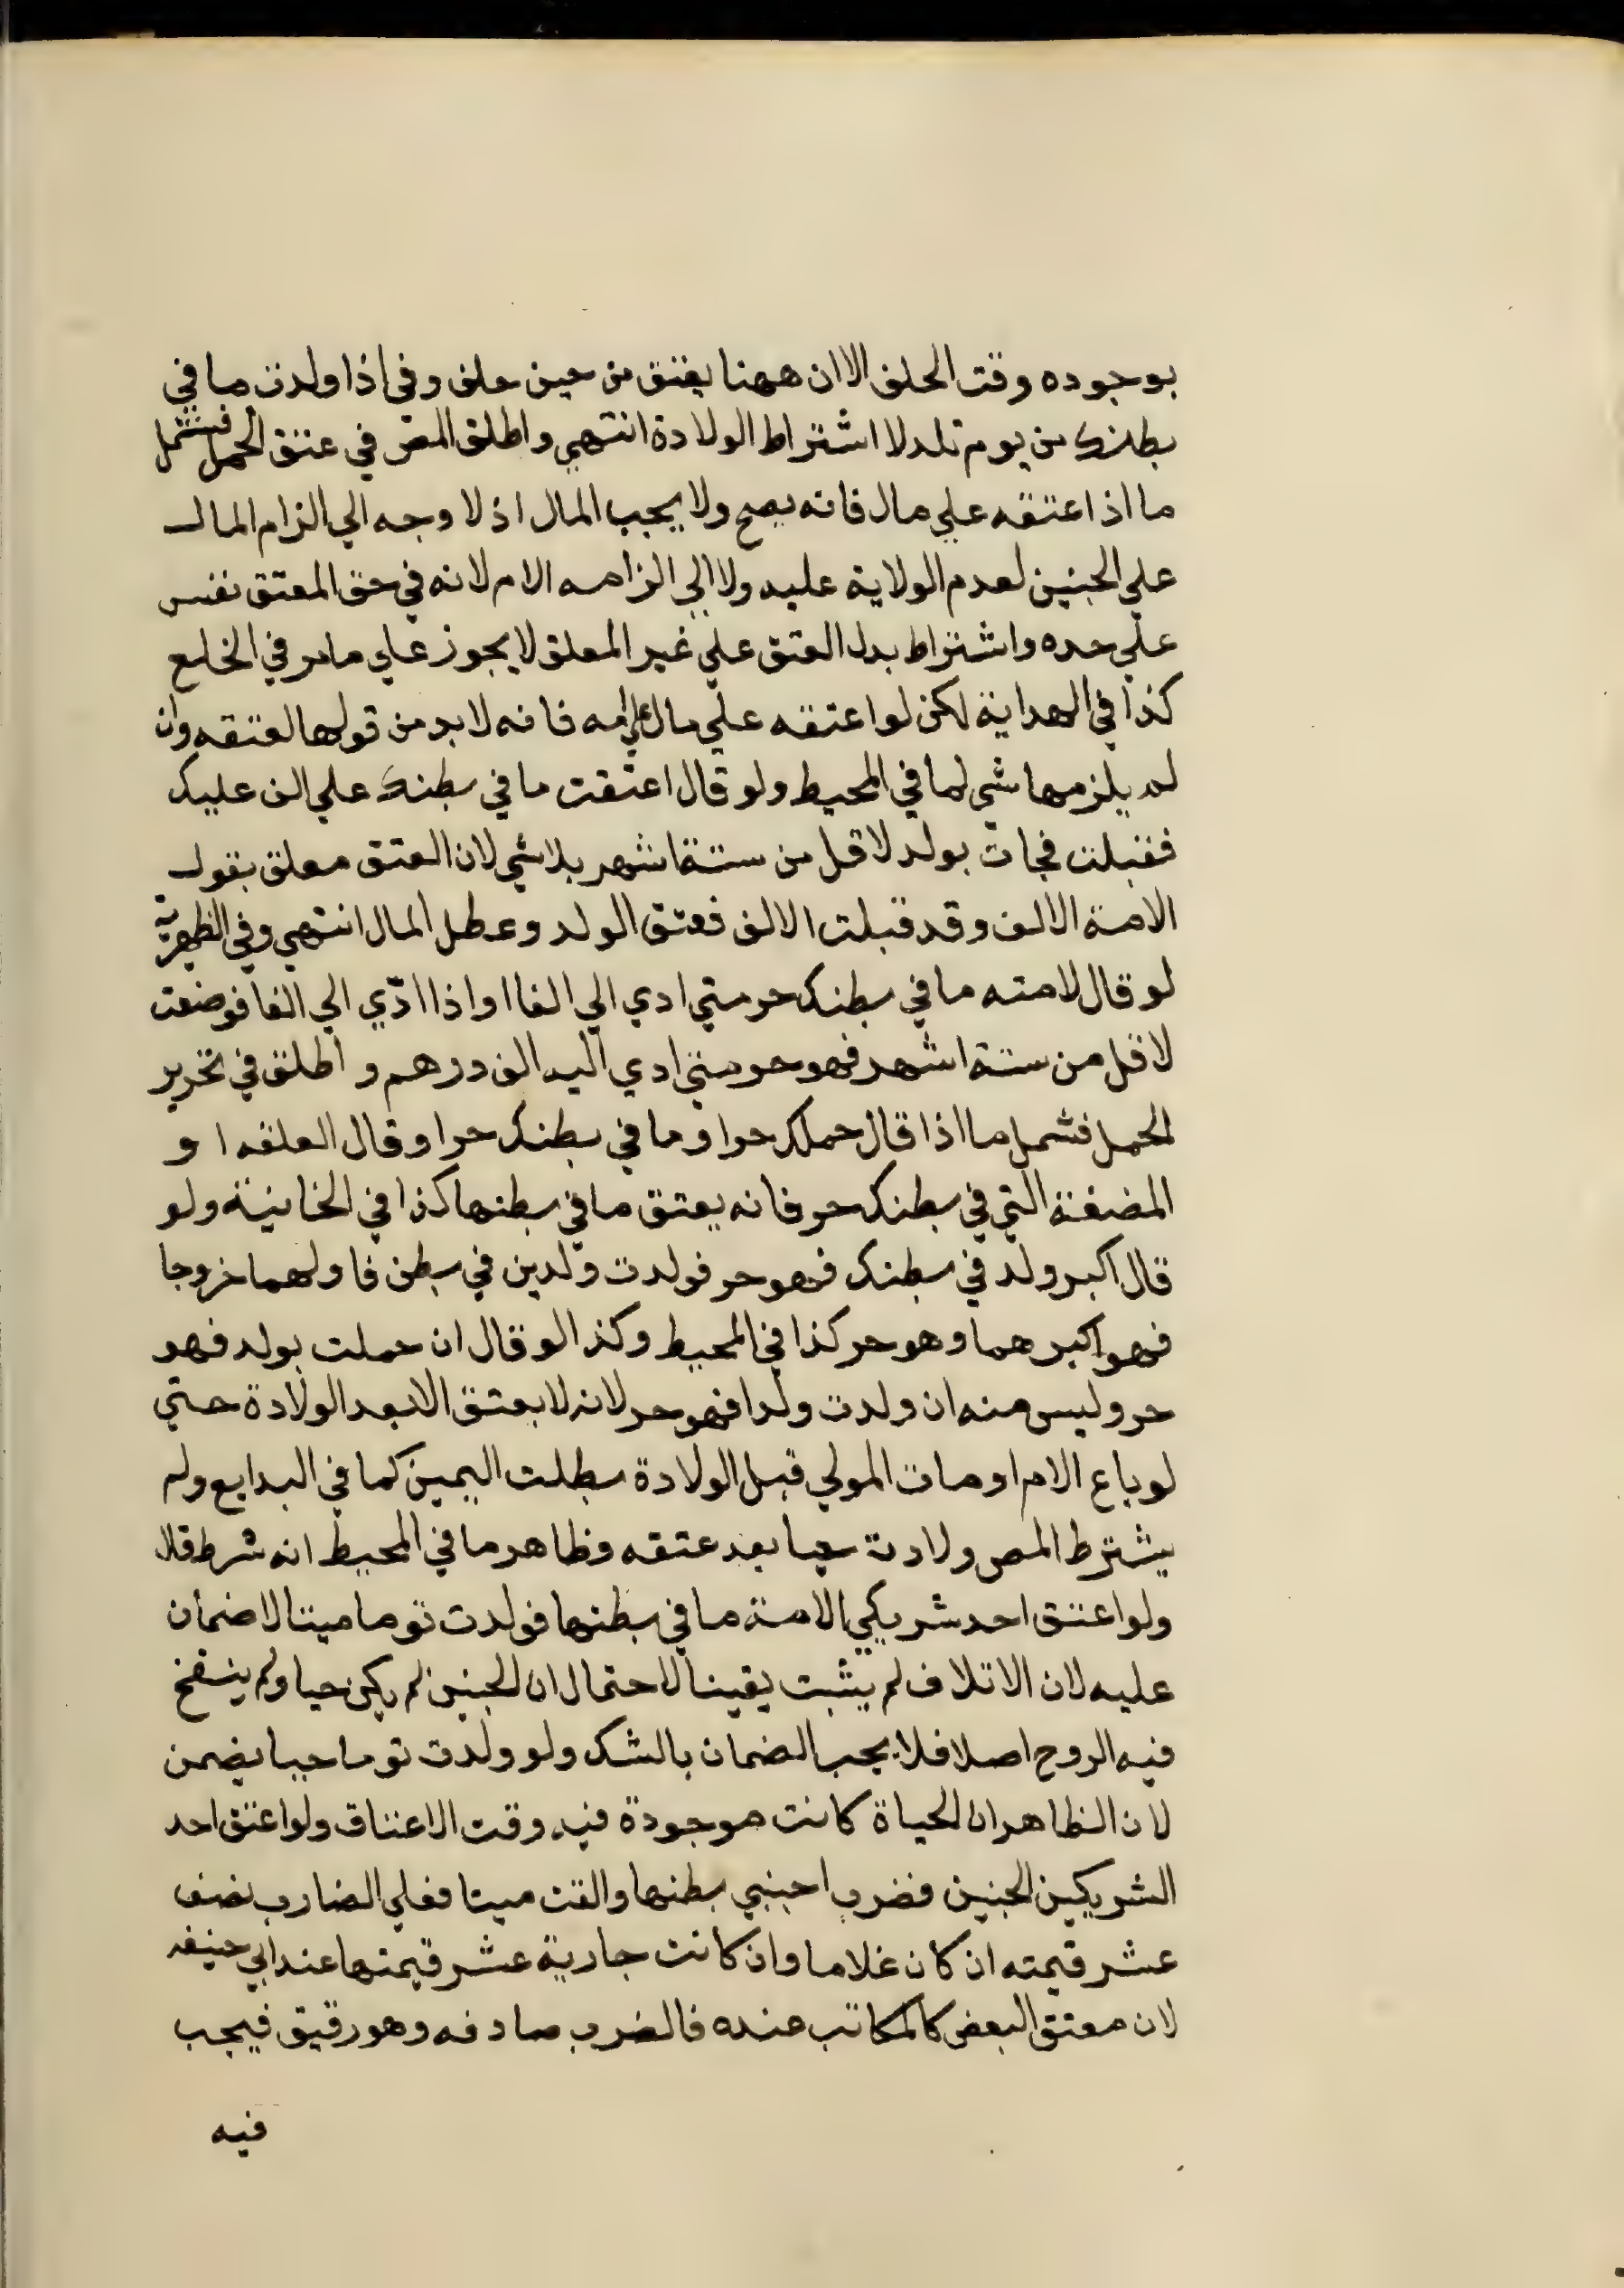 بوجوده وقت الحلف الا ان ههنا يعتق من حين حلف وفي اذا ولدت ما في
بطنك من يوم تلد لاشتراط الولادة انتهي واطلق المص في عتق الحمل فيشمل
ما اذا عتقه علي مال فانه يصح ولا يجب المال اذ لا وجه الي الزام المال
علي الجنين لعدم الولاية عليه ولا الي الزامه الام لانه في حق المعتق نفس
علي حده واشتراط بدل العتق علي غير المعلق لا يجوز علي ما مر في الخلع
كذا في الهداية لكن لو اعتقه علي مال علي امه فانه لا بد من قولها لعتقه وان
لم يلزمها شي لما في المحيط ولو قال اعتقت ما في بطنك علي الف عليك
فقبلت فجات بولد لاقل من ستة اشهر بلا شي لان العتق معلق بقول
الامة الالف وقد قبلت الالف فعتق الولد وعطل المال انتهي وفي الظهيرية
لو قال لامته ما في بطنك حر متي ادي الي الفا او اذا ادّي الي الفا فوضعت
لاقل من ستة اشهر فهو حر متي ادي اليه الف درهم و اطلق في تحرير
الحمل فشمل ما اذا قال حملك حر او ما في بطنك حر او قال العلقه ا و
المضغة التي في بطنك حر فانه يعتق ما في بطنها كذا في الخانية ولو
قال اكبر ولد في بطنك فهو حر فولدت ولدين في بطن فاولهما خروجا
فهو اكبرهما وهو حر كذا في المحيط وكذا لو قال ان حملت بولد فهو
حر وليس منه ان ولدت ولدا فهو حر لانه لا يعتق الا بعد الولادة حتي
لو باع الام او مات المولي قبل الولادة بطلت اليمين كما في البدايع ولم
يشترط المص ولادته حيا بعد عتقه وظاهر ما في المحيط انه شرط قال
ولو اعتق احد شريكي الامة ما في بطنها فولدت توما ميتا لا ضمان
عليه لان الاتلاف لم يثبت يقينا لاحتمال ان الجنين لم يكن حيا ولم ينفخ
فيه الروح اصلا فلا يجب الضمان بالشك ولو ولدت توما حيا يضمن
لان الظاهر ان الحياة كانت موجودة فيه وقت الاعتاق ولو اعتق احد
الشريكين الجنين فضرب اجنبي بطنها والقت ميتا فعلي الضارب نصف
عشر قيمته ان كان غلاما وان كانت جارية عشر قيمتها عند ابي حنيفه
لان معتق البعض كالمكاتب عنده فالضرب صادفه وهو رقيق فيجب
فيه